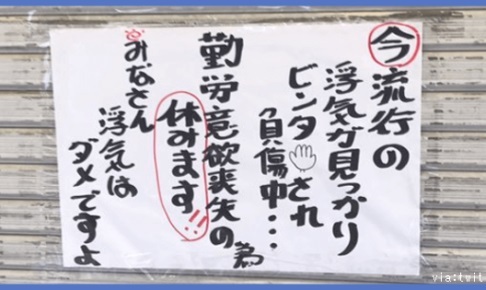 今流行の
浮気が見つかり
ビンタ✋され
負傷中・・・
勤労意欲喪失の為
休みます!!
みなさん
浮気は
ダメですよ
via:twit